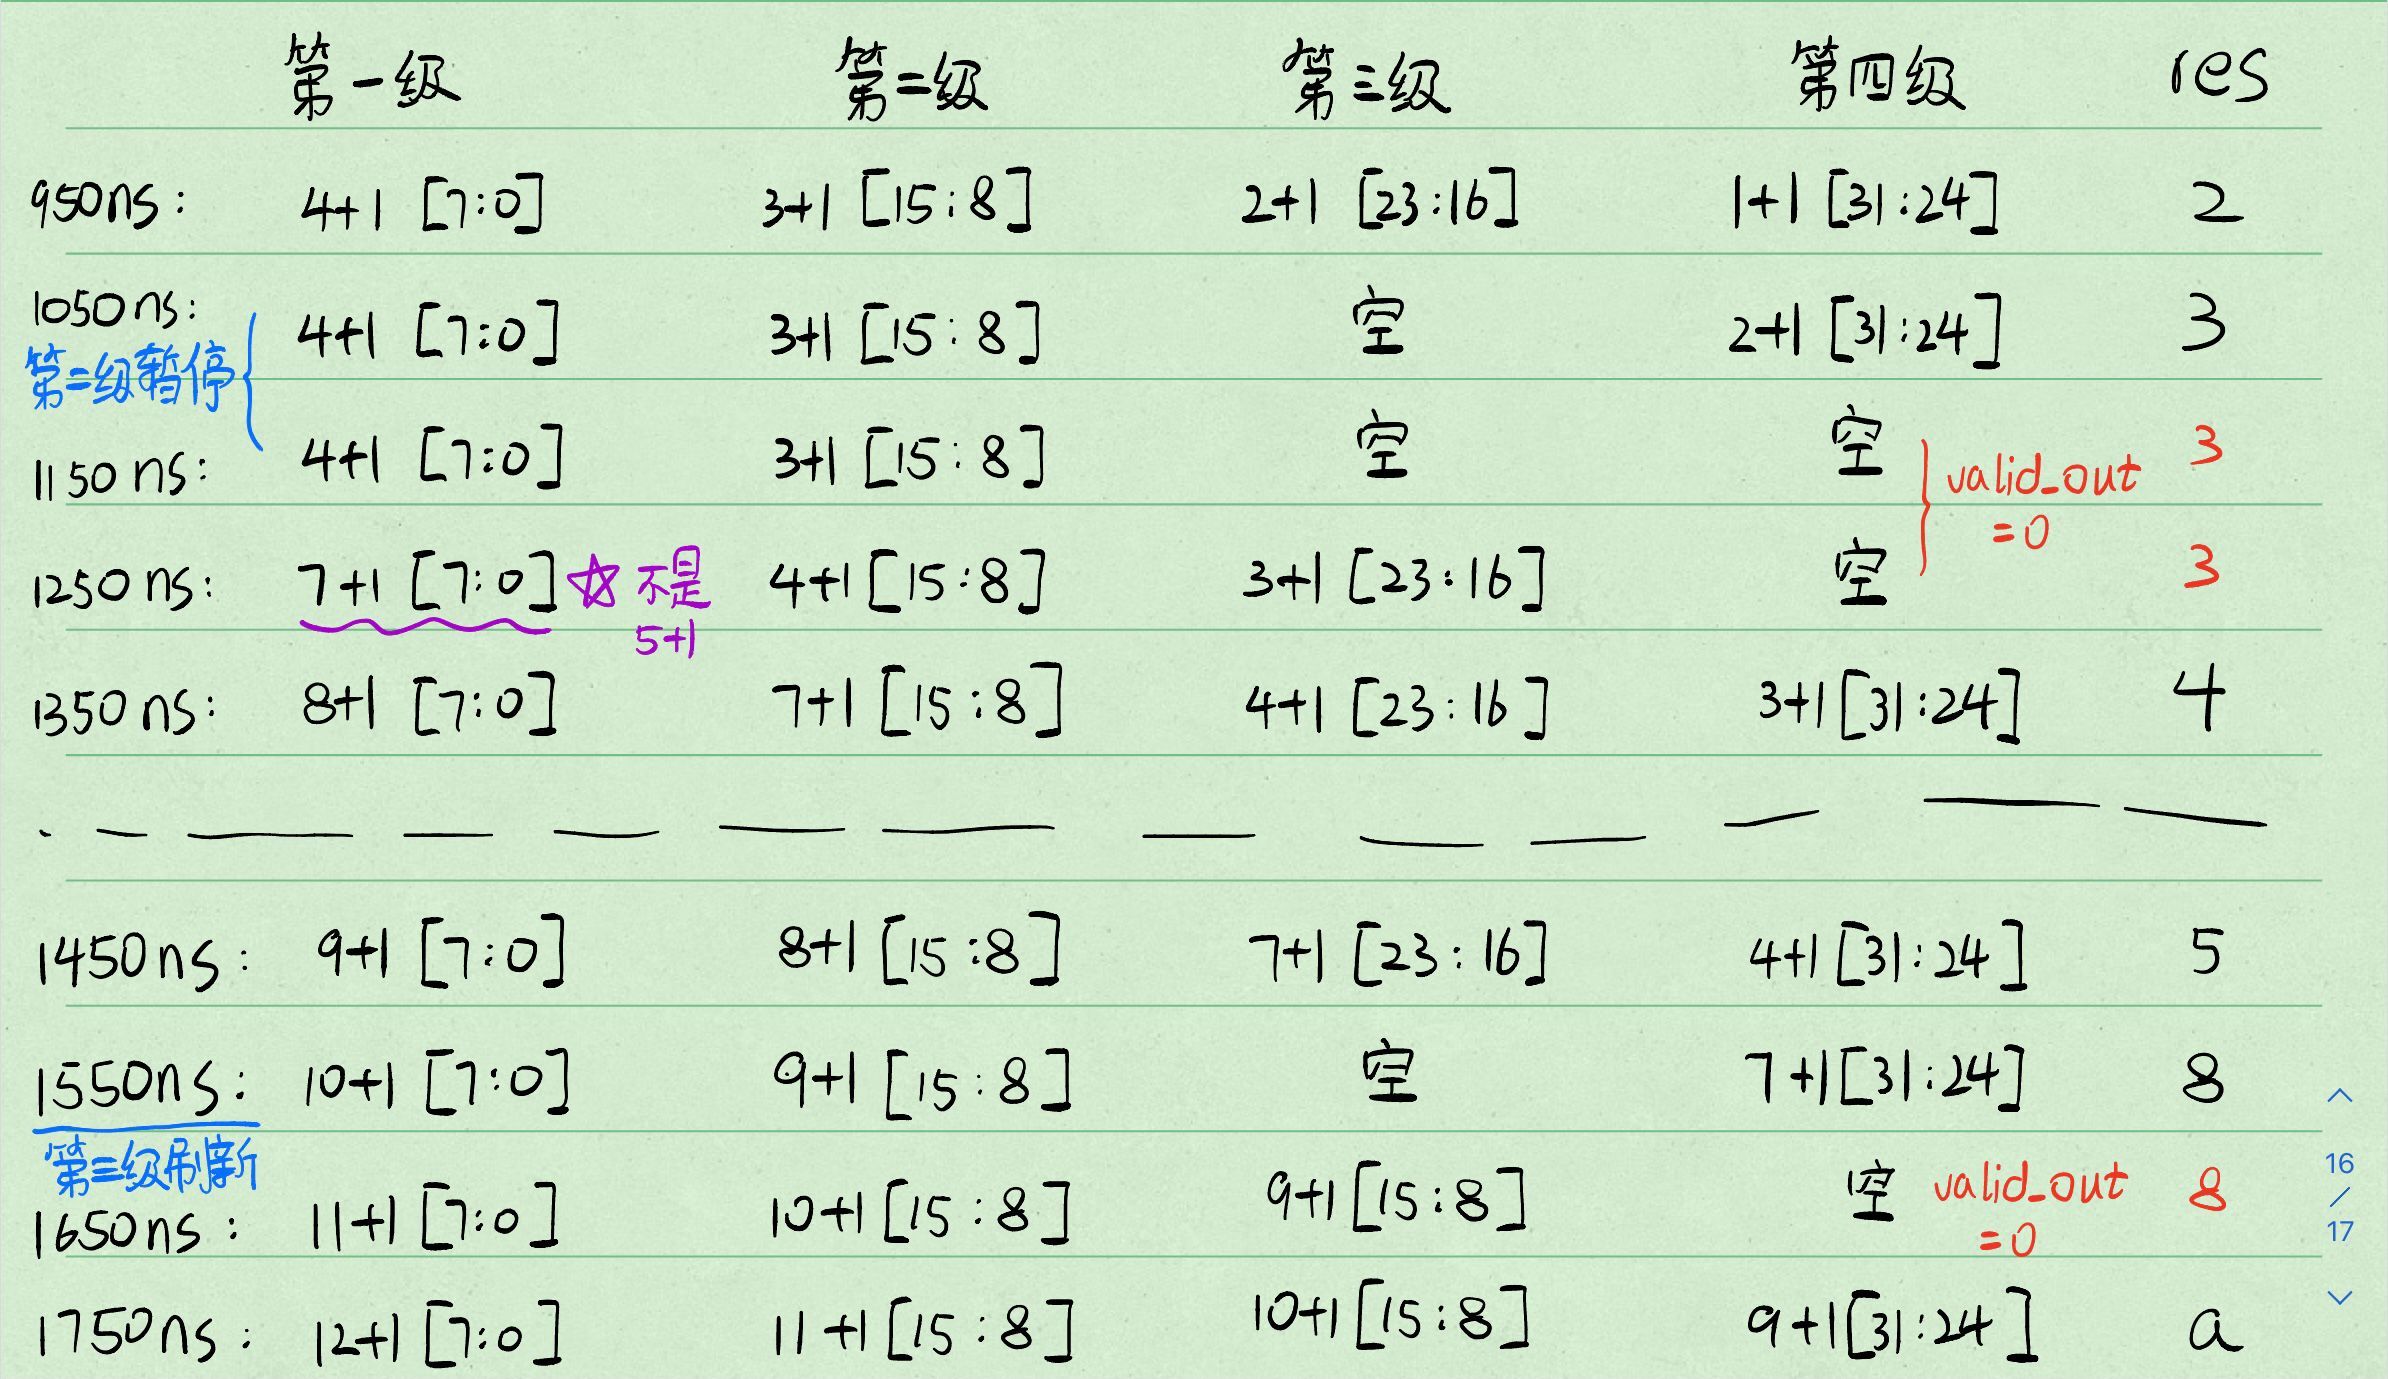 第一级 第二级 第三级 第四级 res
950ns: 4+1 [7:0] 3+1 [15:8] 2+1 [23:16] 1+1 [31:24] 2
1050ns: 4+1 [7:0] 3+1 [15:8] 空 2+1 [31:24] 3
第二级暂停
1150ns: 4+1 [7:0] 3+1 [15:8] 空 空 valid_out =0 3
1250ns: 7+1 [7:0] ☆ 不是 5+1 4+1 [15:8] 3+1 [23:16] 空 3
1350ns: 8+1 [7:0] 7+1 [15:8] 4+1 [23:16] 3+1 [31:24] 4
1450ns: 9+1 [7:0] 8+1 [15:8] 7+1 [23:16] 4+1 [31:24] 5
1550ns: 10+1 [7:0] 9+1 [15:8] 空 7+1 [31:24] 8
第三级刷新
1650ns: 11+1 [7:0] 10+1 [15:8] 9+1 [15:8] 空 valid_out =0 8
1750ns: 12+1 [7:0] 11+1 [15:8] 10+1 [15:8] 9+1 [31:24] a
16
/
17